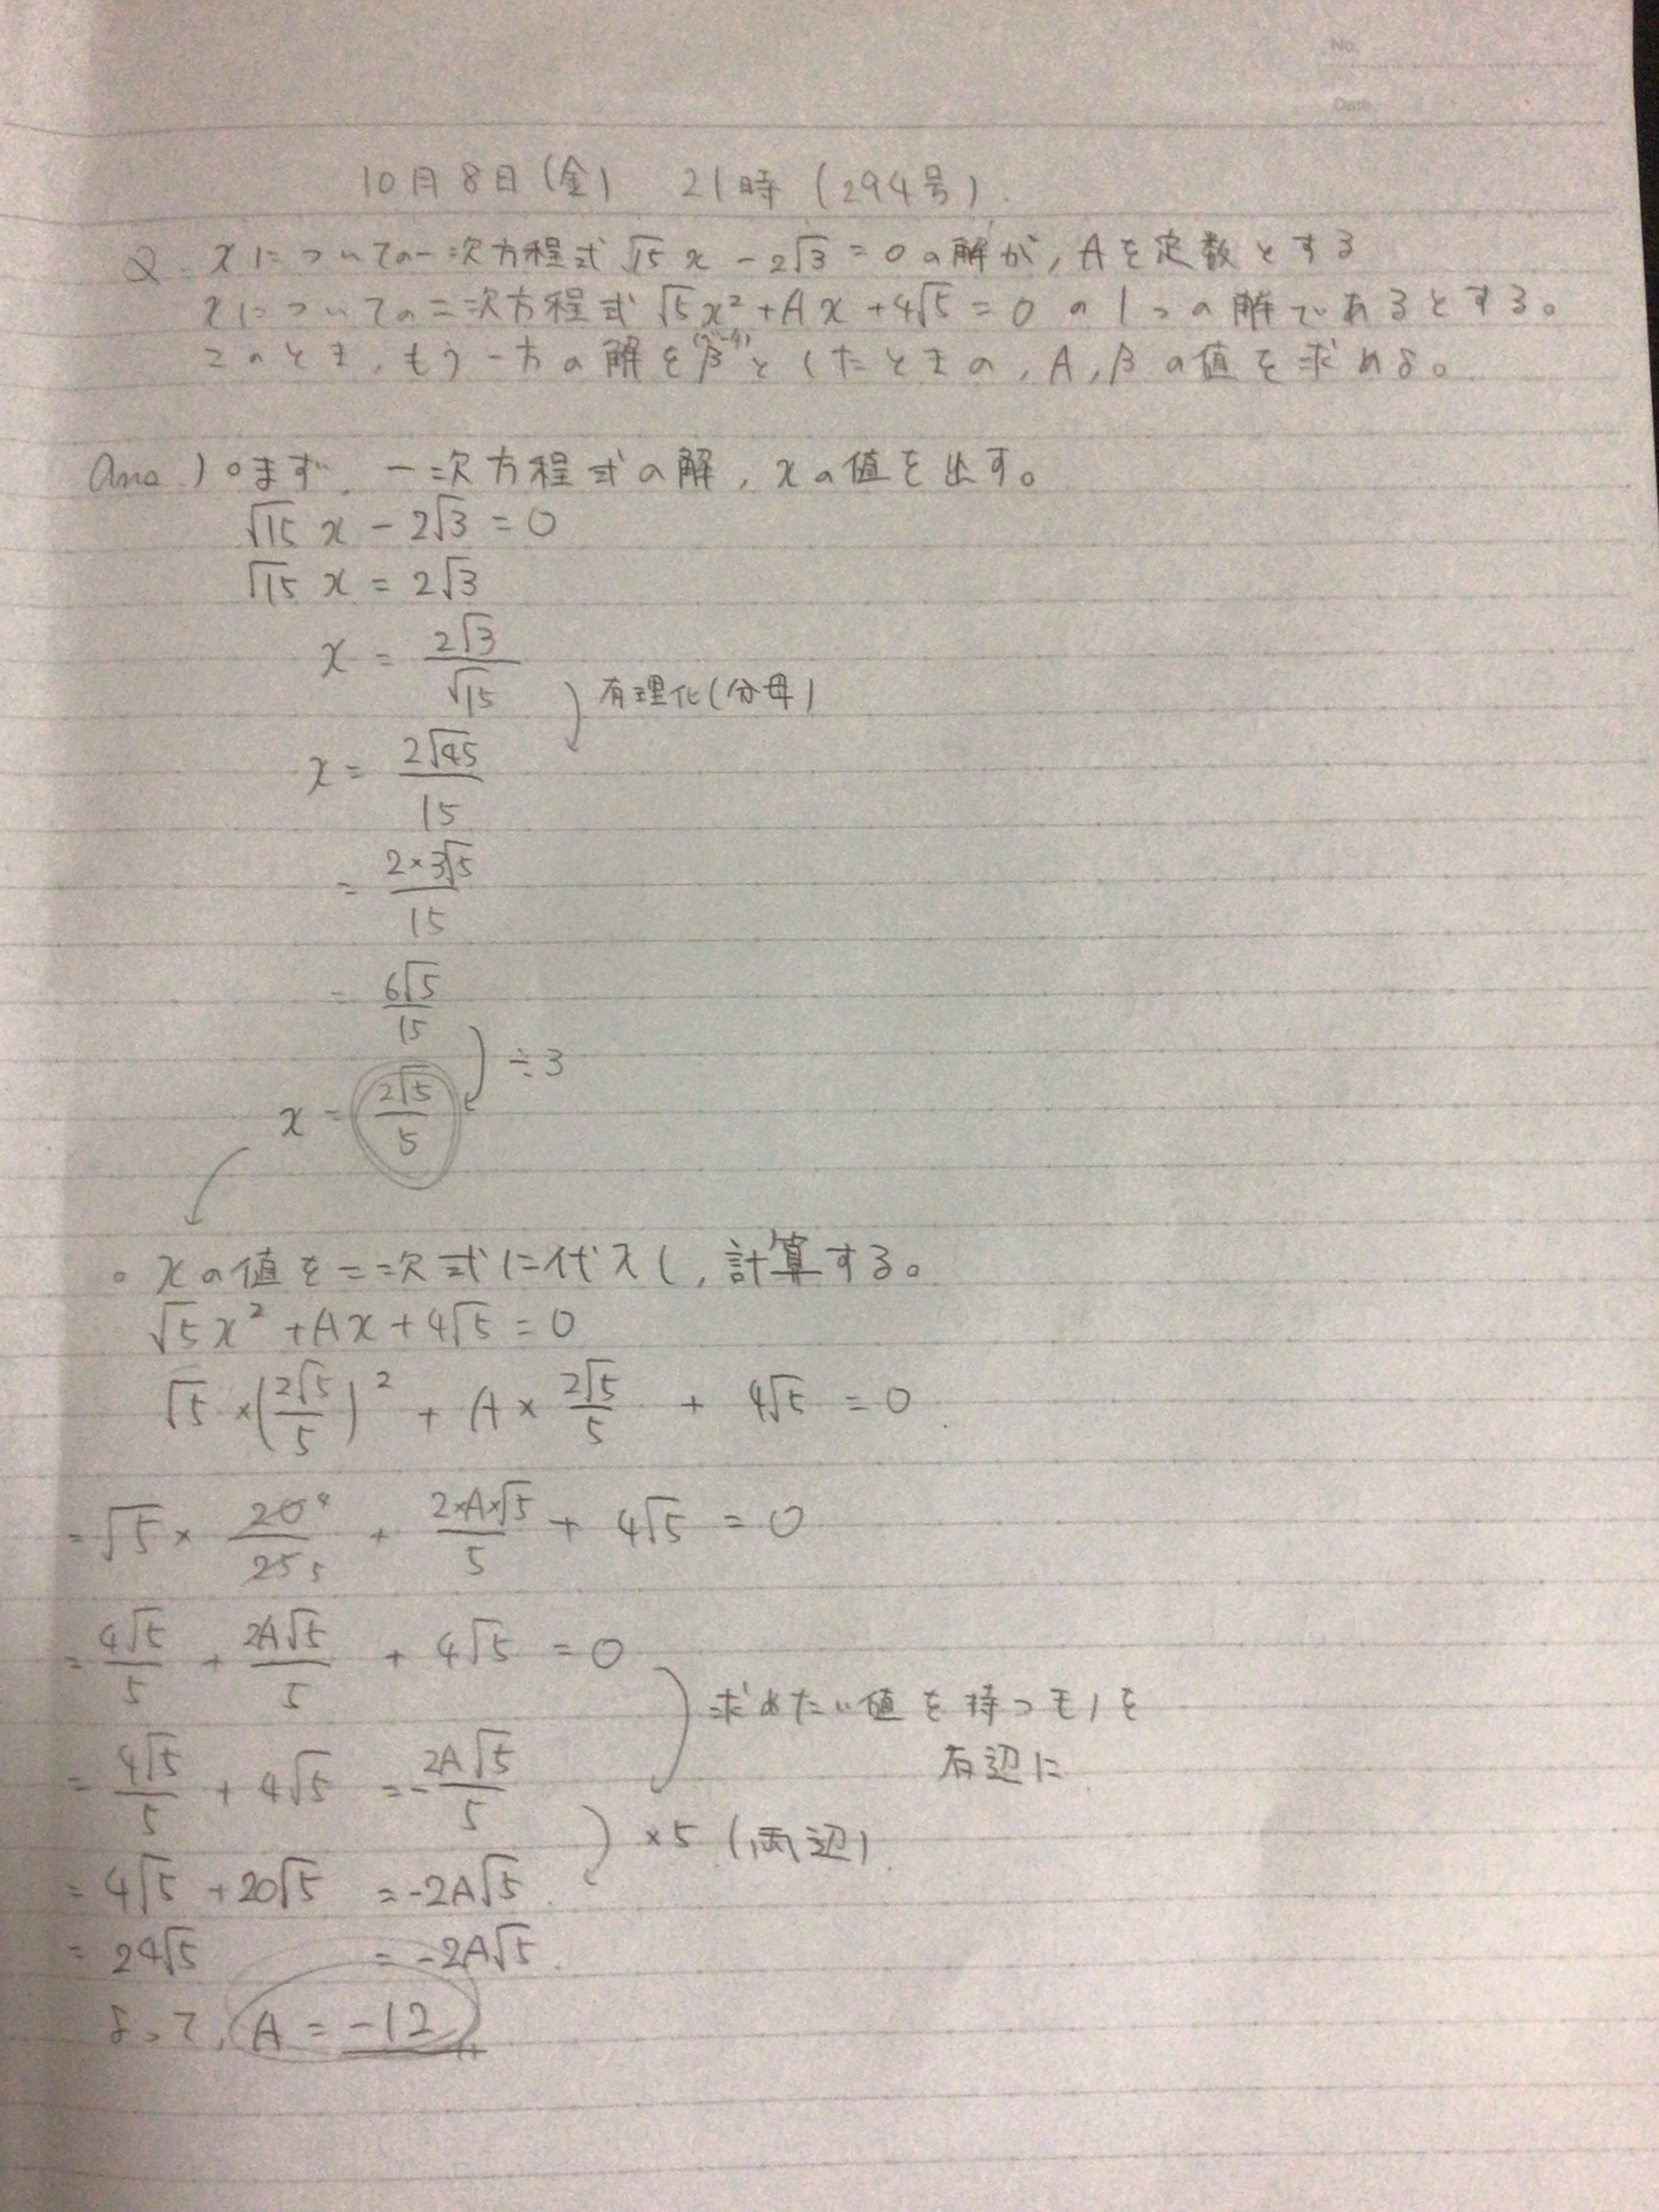 No.
Date
10月8日(金) 21時(294号)
Q. xについての一次方程式√15 x - 2√3 = 0の解が, Aを定数とする
xについての二次方程式√5x² + Ax + 4√5 = 0の1つの解であるとする。
このとき, もう一方の解をβとしたときの, A, βの値を求めよ。
Ans.) ○まず, 一次方程式の解, xの値を出す。
√15 x - 2√3 = 0
√15 x = 2√3
x = 2√3/√15
有理化(分母)
x = 2√45/15
= 2×3√5/15
= 6√5/15
÷3
x = 2√5/5
○ xの値を二次式に代入し, 計算する。
√5x² + Ax + 4√5 = 0
√5 × (2√5/5)² + A × 2√5/5 + 4√5 = 0
= √5 × 20 4/25 5 + 2×A×√5/5 + 4√5 = 0
= 4√5/5 + 2A√5/5 + 4√5 = 0
求めたい値を持つモノを
右辺に
= 4√5/5 + 4√5 = -2A√5/5
×5 (両辺)
= 4√5 + 20√5 = -2A√5
= 24√5 = -2A√5
よって, A = -12